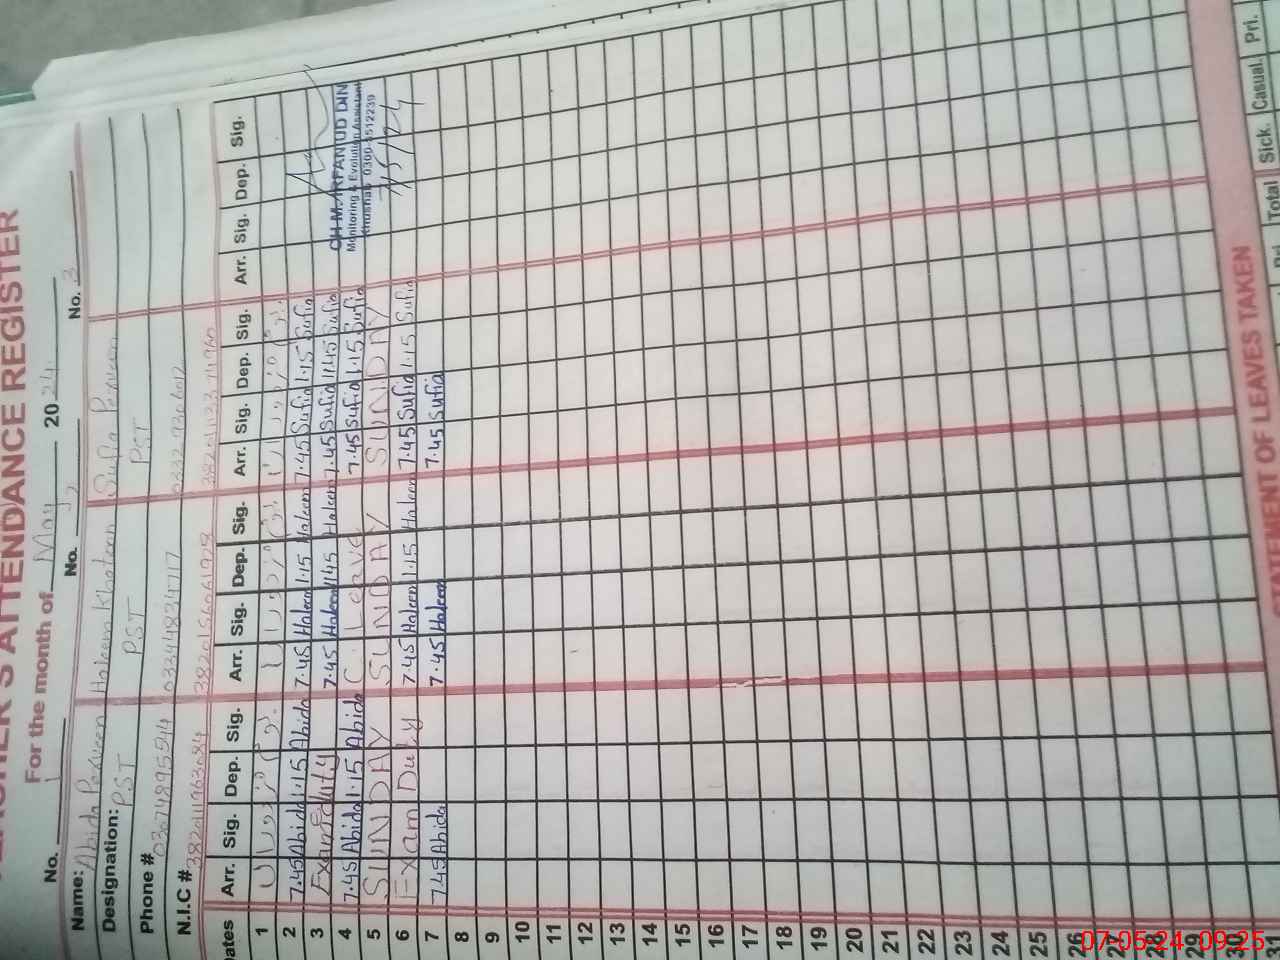 TEACHER'S ATTENDANCE REGISTER
For the month of May 2024
No. 1 No. 2 No. 3
Name: Abida Perveen Haleem Khatoon Sufia Perveen
Designation: PST PST PST
Phone # 03074895544 03344834717
N.I.C #
Dates Arr. Sig. Dep. Sig. Arr. Sig. Dep. Sig. Arr. Sig. Dep. Sig. Arr. Sig. Dep. Sig.
1
2 7.45 Abida 1.15 Abida 7.45 Haleem 1.15 Haleem 7.45 Sufia 1.15 Sufia
3 Exam Duty 7.45 Haleem 1145 Haleem 7.45 Sufia 11.45 Sufia
4 7.45 Abida 1.15 Abida C. Leave 7.45 Sufia 1.15 Sufia
5 SUNDAY SUNDAY SUNDAY
6 Exam Duty 7.45 Haleem 1.15 Haleem 7.45 Sufia 1.15 Sufia
7 7.45 Abida 7.45 Haleem 7.45 Sufia
CH M. IRFAN UD DIN
Monitoring & Evolution Assistant
Khushab 0300-8512239
7/5/24
8
9
10
11
12
13
14
15
16
17
18
19
20
21
22
23
24
25
26
27
28
29
30
31
STATEMENT OF LEAVES TAKEN
Pri. Total Sick. Casual. Pri.
07-05-24 09:25